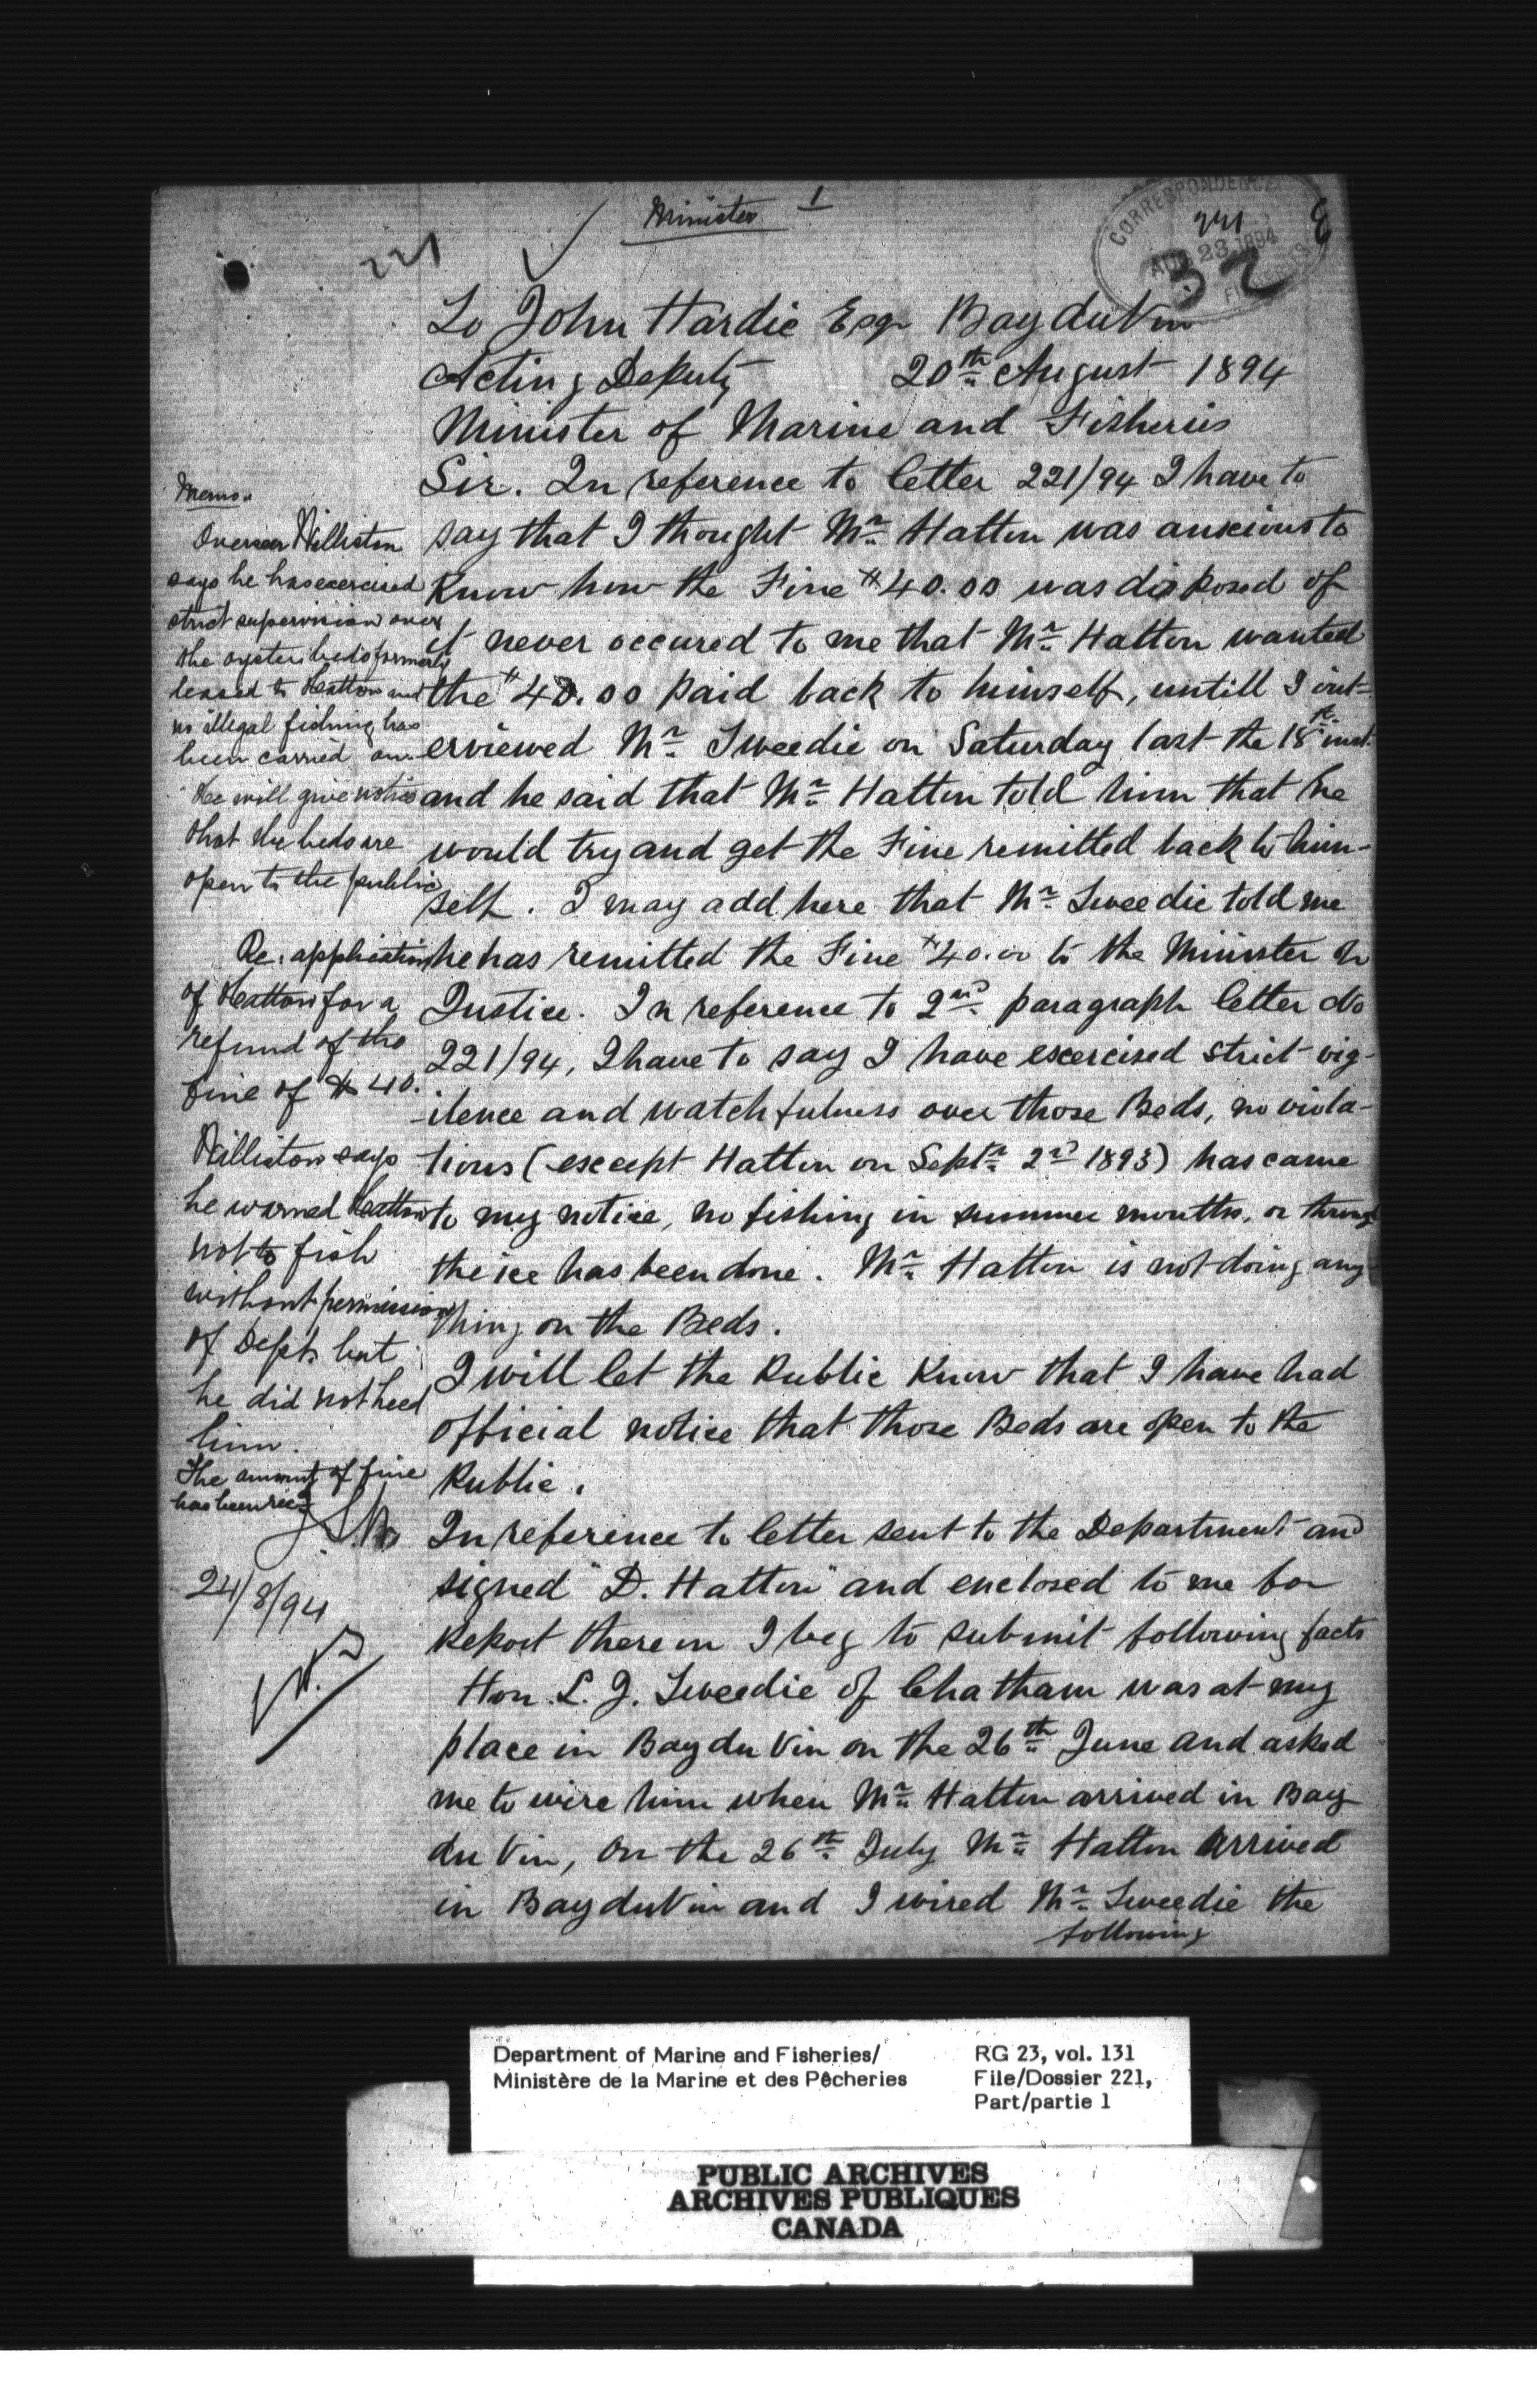 Minister 1
221
CORRESPONDENCE
221
AUG 23 1894
32
FISHERIES
To John Hardie Esqr Bay du Vin
Acting Deputy 20th August 1894
Minister of Marine and Fisheries
Sir. In reference to letter 221/94 I have to
say that I thought Mr Hatton was anxious to
Know how the Fine $40.00 was disposed of
it never occured to me that Mr Hatton wanted
the $40.00 paid back to himself, untill I int-
erviewed Mr Tweedie on Saturday last the 18th inst.
and he said that Mr Hatton told him that he
would try and get the Fine remitted back to him-
self. I may add here that Mr Tweedie told me
he has remitted the Fine $40.00 to the Minister of
Justice. In reference to 2nd paragraph letter No
221/94, I have to say I have excercised strict vig-
-ilence and watchfulness over those Beds, no viola-
tions (except Hatton on Septr 2nd 1893) has came
to my notice, no fishing in summer months, or through
the ice has been done. Mr Hatton is not doing any
thing on the Beds.
I will let the Public Know that I have had
official notice that those Beds are open to the
Public.
In reference to letter sent to the Department and
signed "D. Hatton" and enclosed to me for
Report therein I beg to submit following facts
Hon. L. J. Tweedie of Chatham was at my
place in Bay du Vin on the 26th June and asked
me to wire him when Mr Hatton arrived in Bay
du Vin, On the 26th July Mr Hatton arrived
in Bay du Vin and I wired Mr Tweedie the
following
Memo.
Overseer Williston
says he has exercised
strict supervision over
the oyster beds formerly
leased to Hatton and
no illegal fishing has
been carried on.
He will give notice
that the beds are
open to the public
Re. application
of Hatton for a
refund of the
fine of $40.
Williston says
he warned Hatton
not to fish
without permission
of Dept. but
he did not heed
him.
The amount of fine
has been recd
24/8/94
Department of Marine and Fisheries/
Ministère de la Marine et des Pêcheries
RG 23, vol. 131
File/Dossier 221,
Part/partie 1
PUBLIC ARCHIVES
ARCHIVES PUBLIQUES
CANADA